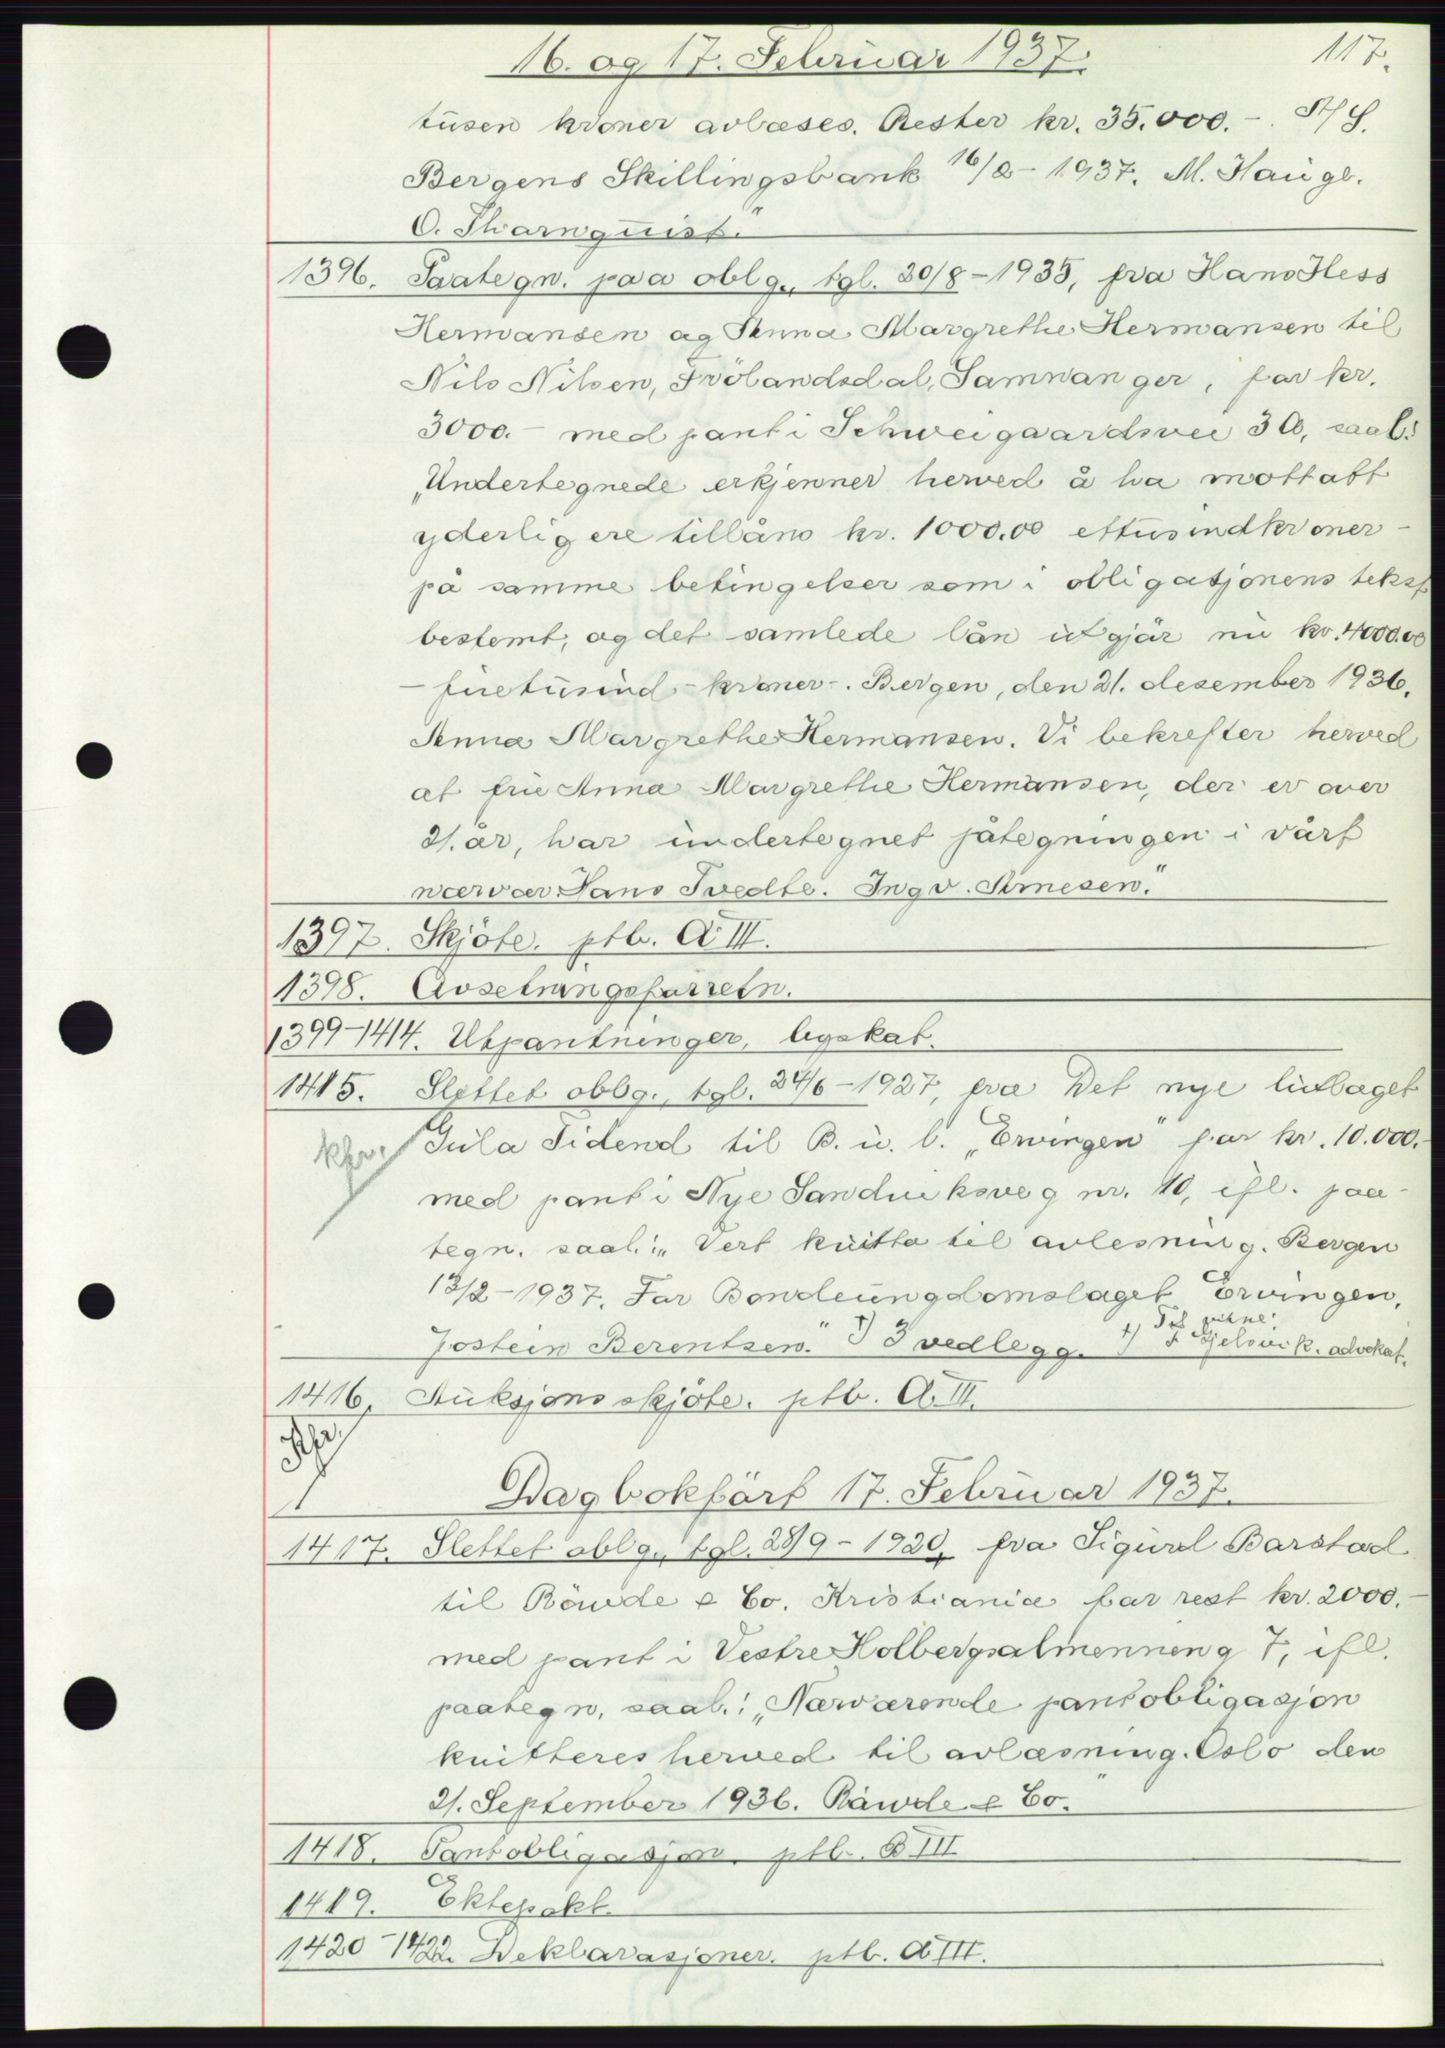 16. og 17. Februar 1937.
117.
tusen kroner avlæses. Rester kr. 35.000.-.
Bergens Skillingsbank 16/2-1937. M. Hauge.
O. Tharnquist."
1396. Paategn. paa oblg., tgl. 30/8-1935, fra Hans Hess
Hermansen og Anna Margrethe Hermansen til
Nils Nilsen, Frölandsdal, Samnanger, for kr.
3000.- med pant i Schweigaardsvei 3 A, saal.:
"Undertegnede erkjenner herved å ha mottatt
yderligere tillåns kr. 1000.00 ettusindkroner -
på samme betingelser som i obligatjonens tekst
bestemt, og det samlede lån utgjör nu kr. 4000.00
- firetusind - kroner -. Bergen, den 21. desember 1936.
Anna Margrethe Hermansen. Vi bekrefter herved
at frue Anna Margrethe Hermansen, der er over
21. år, har undertegnet påtegningen i vårt
nærvær Hans Tvedte. Ingv. Arnesen."
1397. Skjöte. ptb. A III.
1398. Avsetningsforretn.
1399-1414. Utpantninger, byskat.
1415. Slettet oblg., tgl. 24/6-1927, fra Det nye lutlaget
Gula Tidend til B. u. l. "Ervingen" for kr. 10.000.-
med pant i Nye Sandviksveg nr. 40, ifl. paa-
tegn. saal.: "Vert kvitta til avlesning. Bergen
13/2-1937. For Bondeungdomslaget Ervingen,
Jostein Berentsen." 1) 3 vedlegg. 1) Gjelsvik. advokat.
1416. Auksjonsskjöte. ptb. A. III.
Dagbokfört 17. Februar 1937.
1417. Slettet oblg., tgl. 28/9-1920, fra Sigurd Barstad
til Röwde & Co. Kristiania for rest kr. 2000.-
med pant i Vestre Holbergsalmenning 7, ifl.
paategn, saal.: "Nærværende pantobligasjon
kvitteres herved til avlæsning. Oslo den
21. September 1936. Röwde & Co."
1418. Pantobligasjon. ptb. B III
1419. Ektepakt.
1420-1422. Deklarasjoner. ptb. A III.